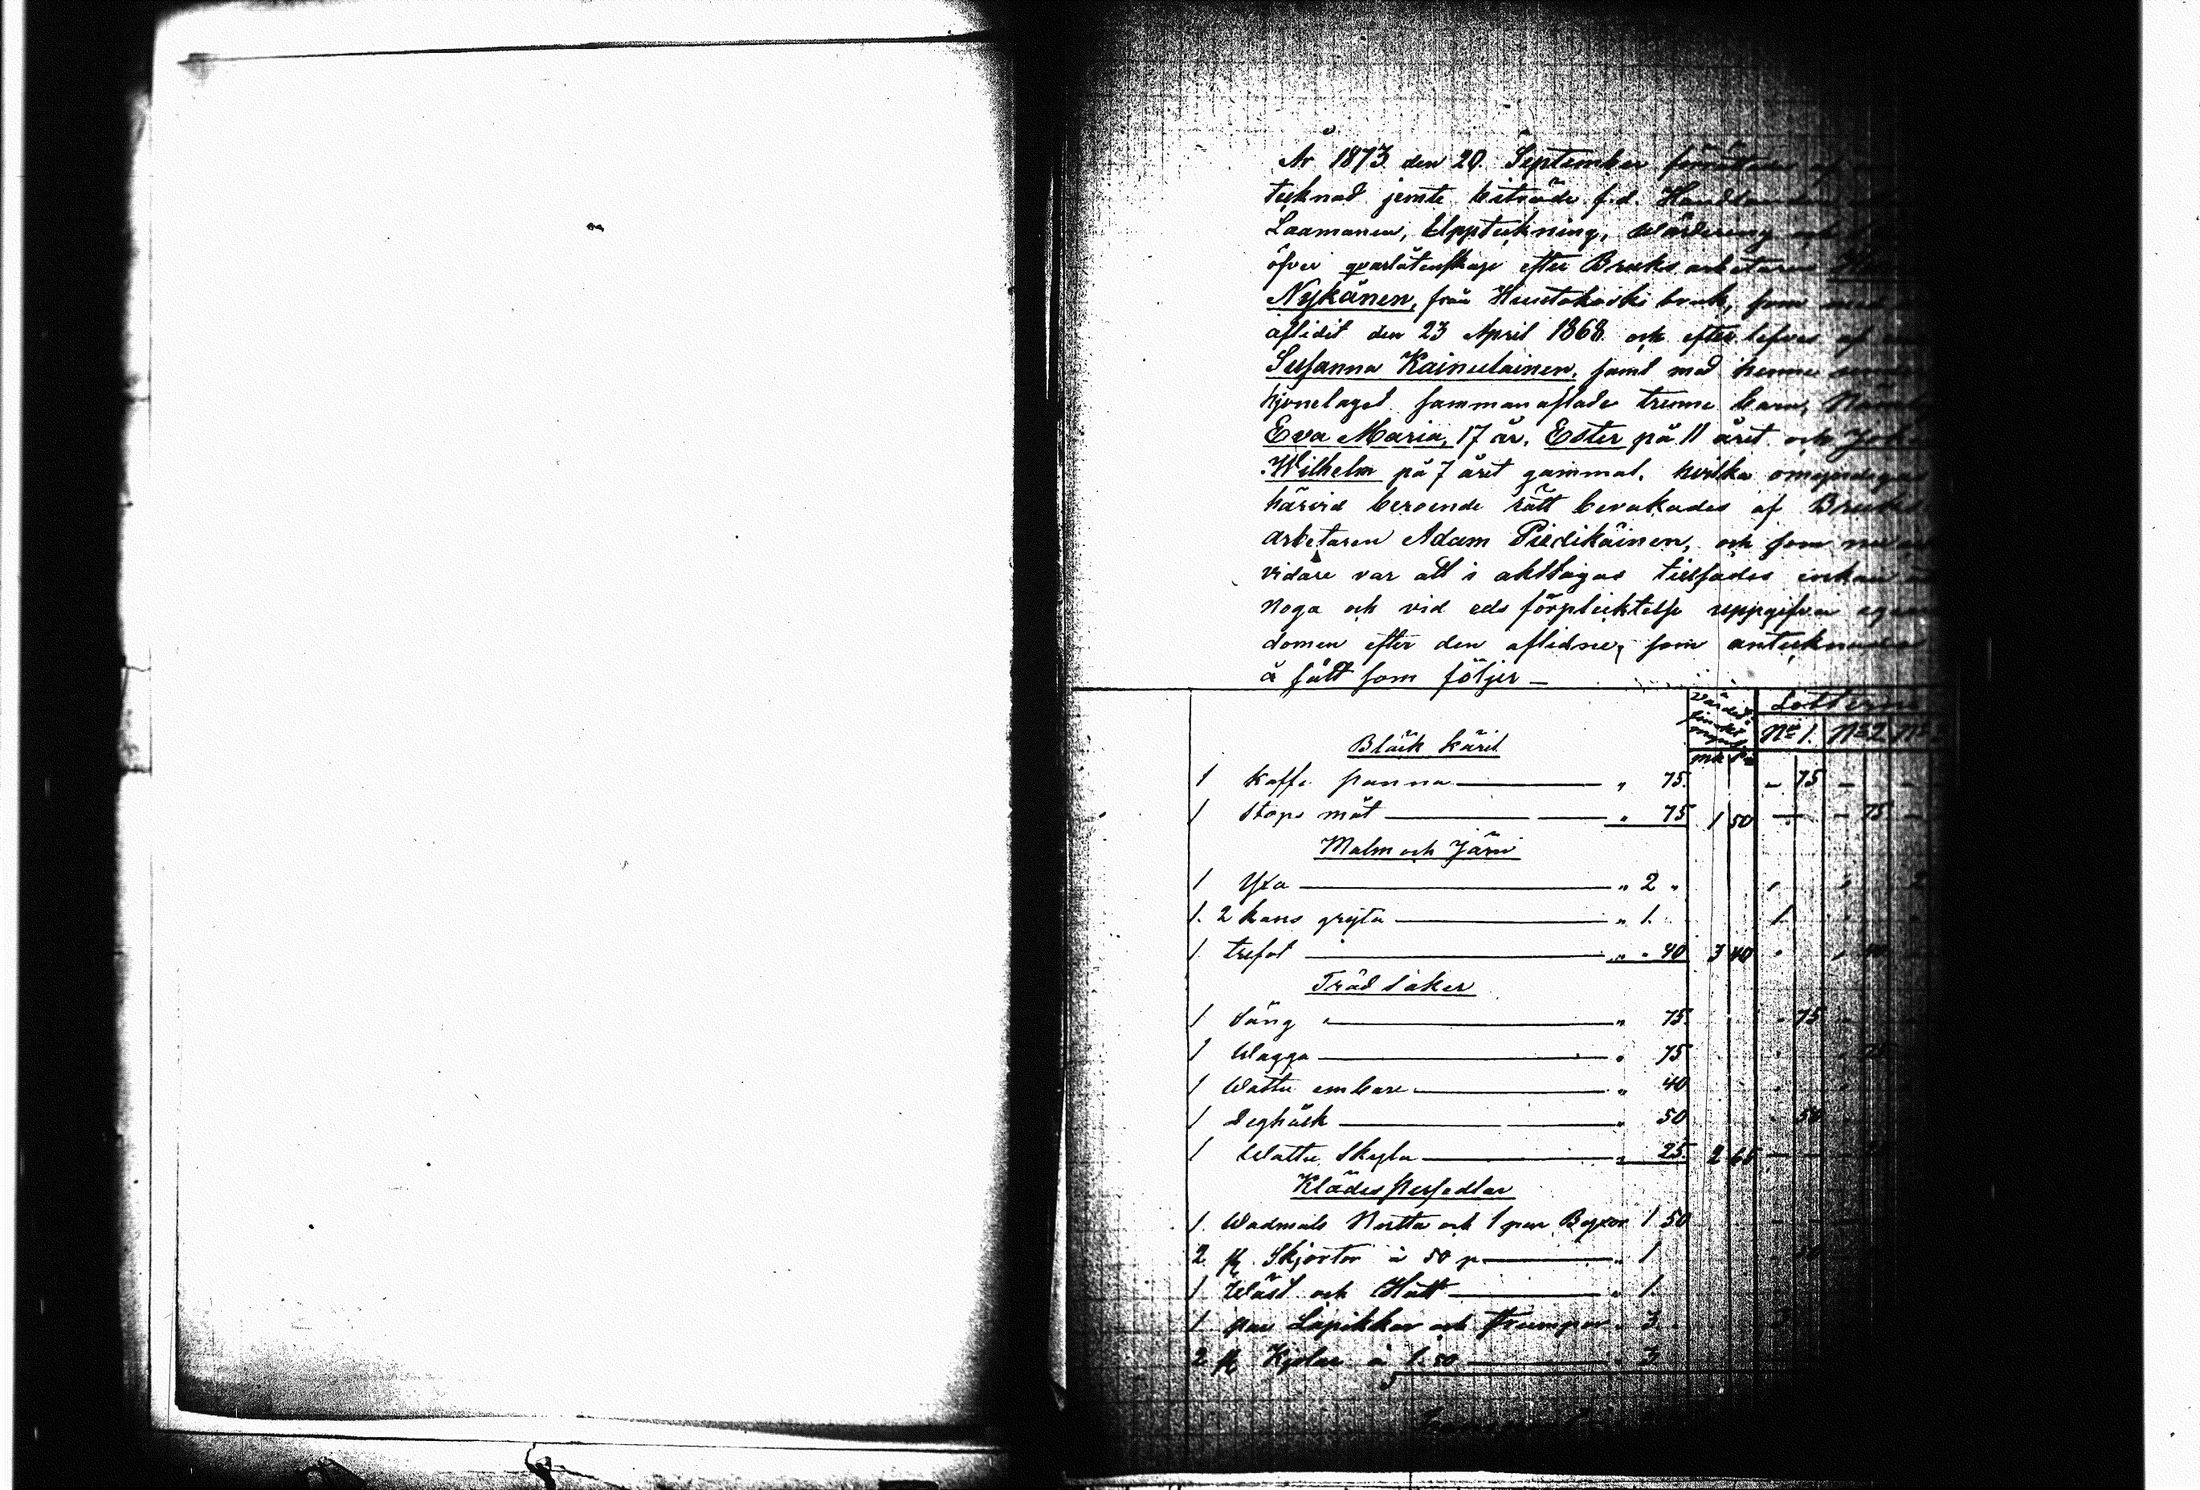 År 1873 den 20. September förrättades af
tecknad jemte biträde f.d. Handlanden
Laamanen, Uppteckning, Wärdering och
öfver qvarlåtenskap efter Bruks arbetaren
Nykänen, från Huutokoski bruk, som med
aflidit den 23 April 1868 och efterlefves af
Susanna Kainulainen, samt med henne under
hjonelaget sammanaflade trenne barn, Näml
Eva Maria, 17 år, Ester på 11 året och Joh
Wilhelm på 7 året gammal, hvilka omyndigas
härvid beroende rätt bevakades af Bruks
arbetaren Adam Piedikäinen, och som nu
vidare var att i akttagas tillsades enkan
noga och vid eds förpliktelse uppgifva egen
domen efter den aflidne, som antecknades
å sätt som följer —
Värdet finskt mynt Lotterne
mk pi No 1. No 2 No
Bläck käril
1 Kaffe panna — " 75. - 75 - -
1 Stops mått — " 75 1 50 - - 75 -
Malm och Järn
1 Yxa — " 2 " " " 2
1. 2 kans gryta — " 1. 1
1. trefot — " " 40 3 40 " " 40
Träd saker
1 Säng — " 75. - 75 -
1 Wagga — " 75 75
1 Wattu embare — " 40
1 Deghäck — " 50 50
1 Wattu Skopa — " 25. 2 65 - -
Klädes Persedlar
1. Wadmals Nutta och 1 par Byxor 1 50
2. st. Skjortor à 50 p — " 1
1 Wäst och Hatt — " 1.
1 par Lapikkor och strumpor " 3
2 st Kjolar à 1.50 — 3